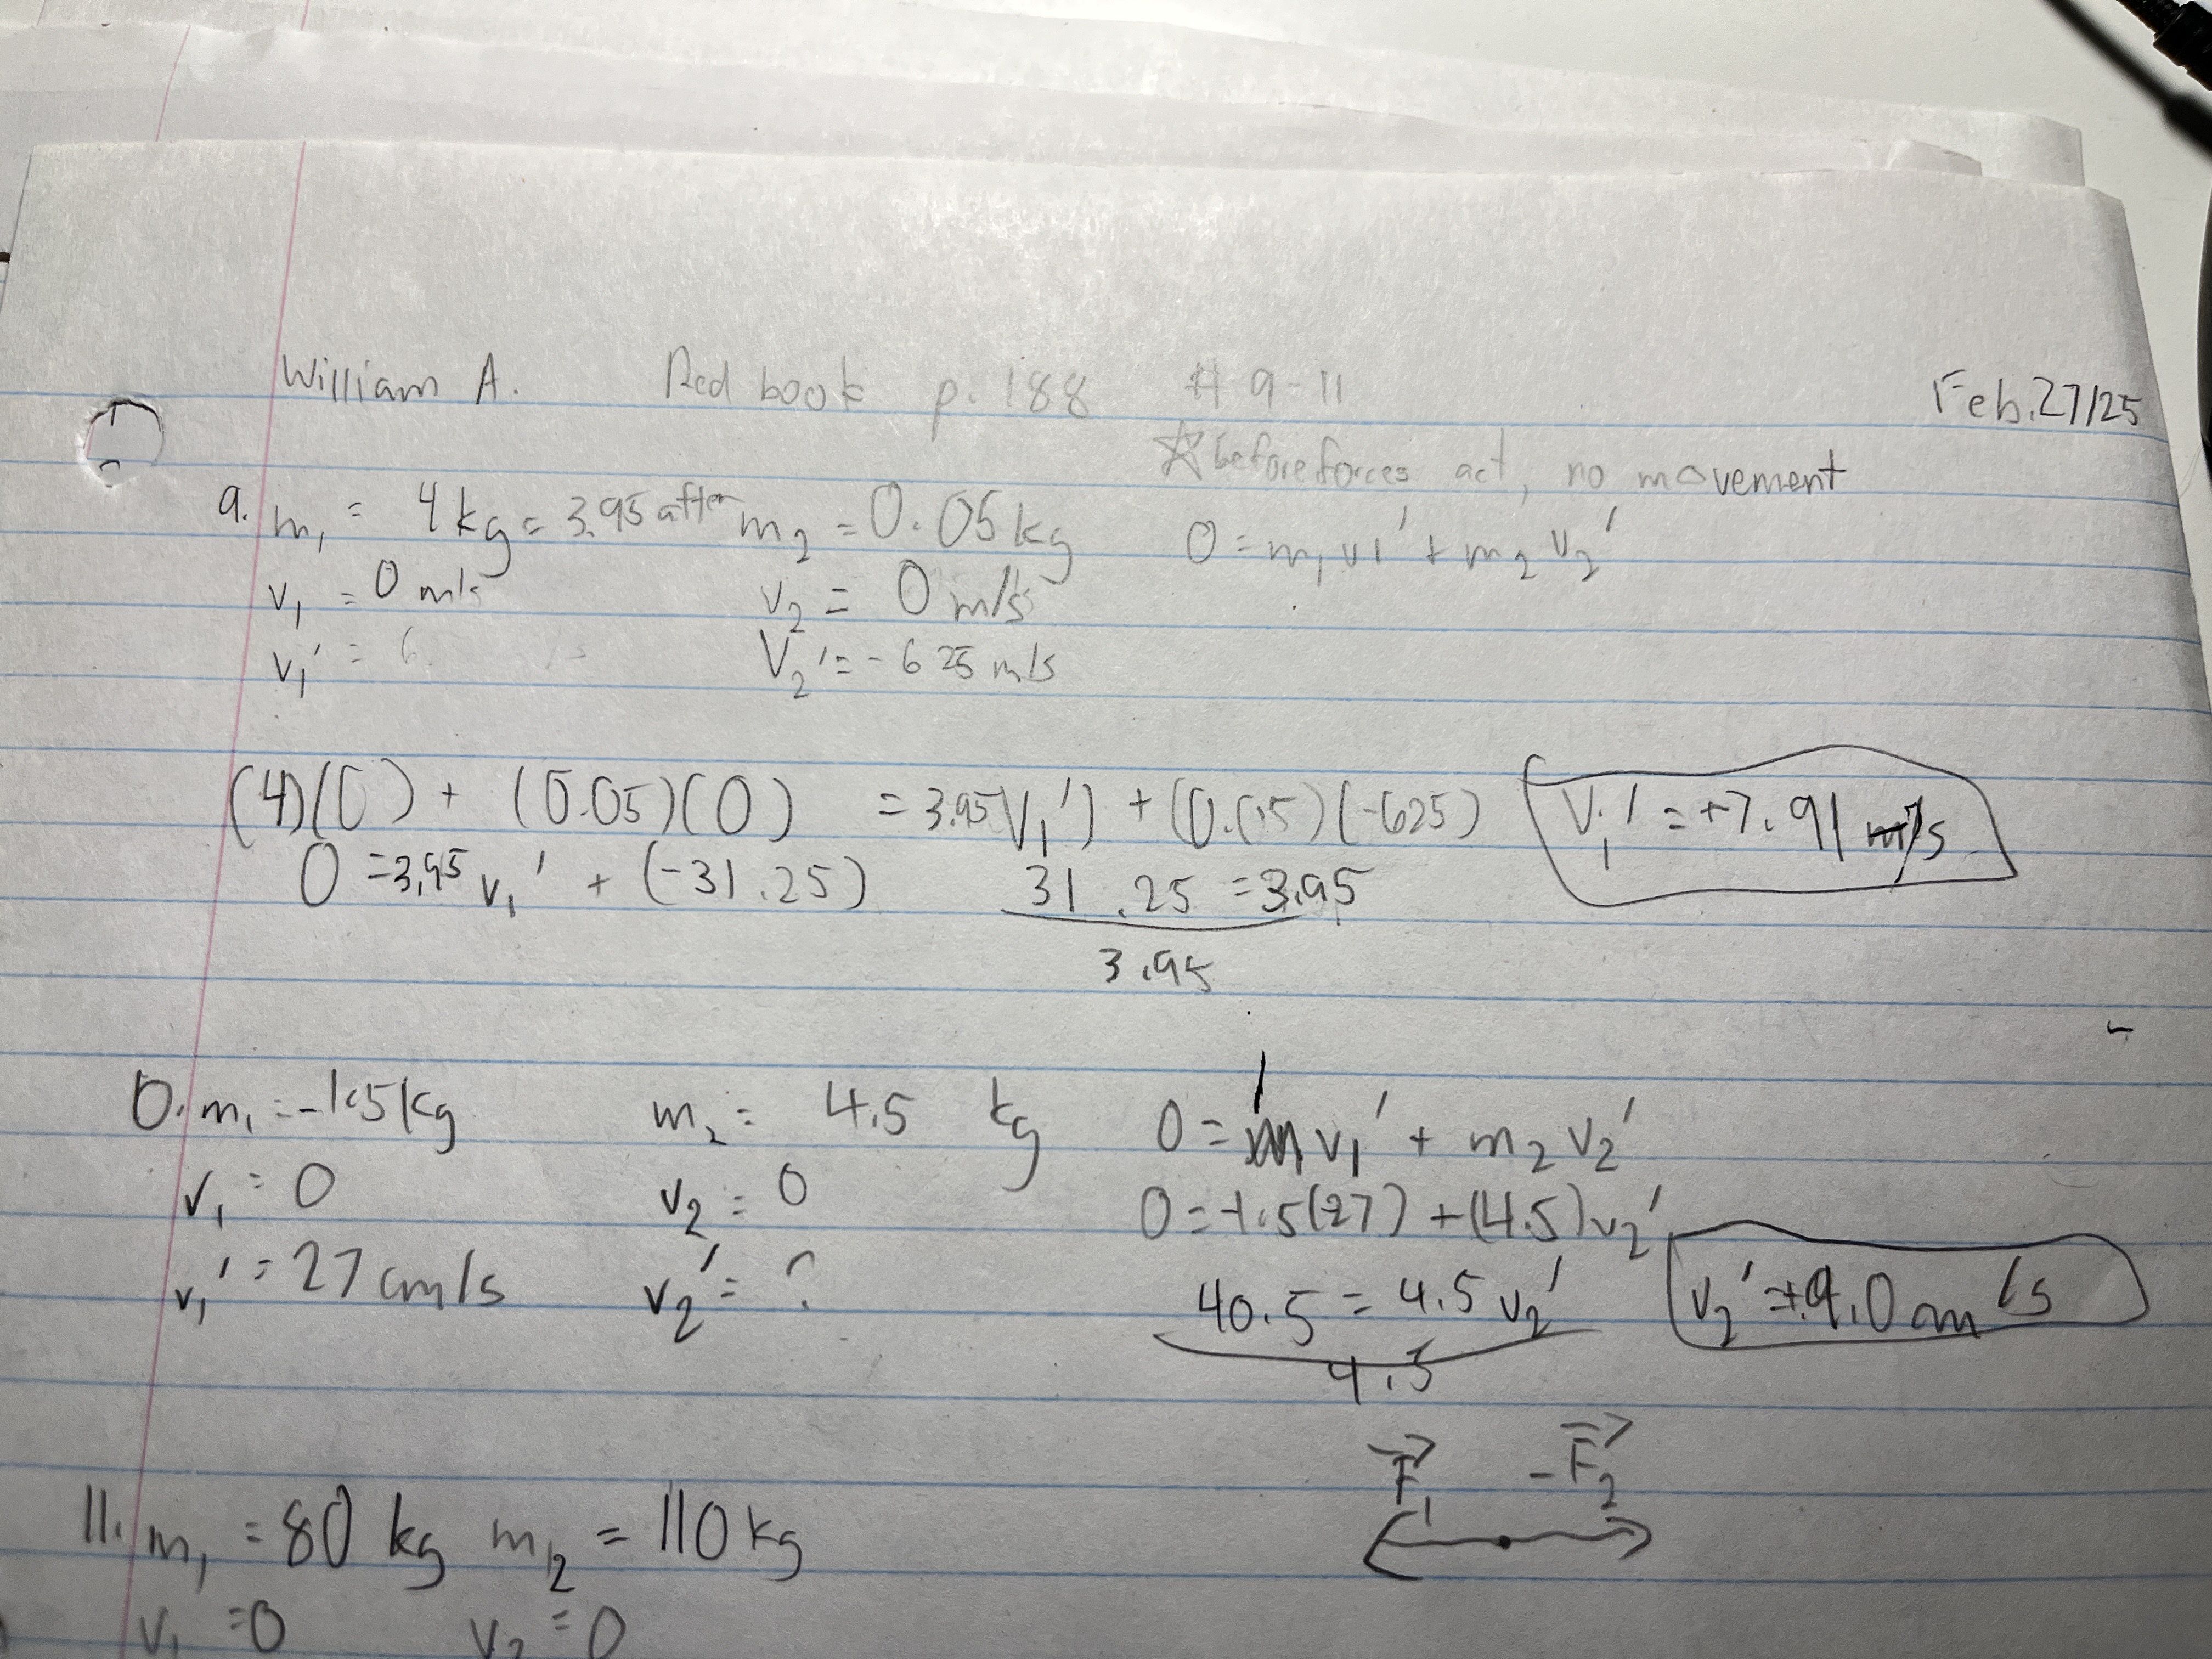 William A. Red book p. 188 # 9-11 Feb. 27/25
☆ before forces act, no movement
9. m₁ = 4 kg = 3.95 after m₂ = 0.05 kg 0 = m₁v1' + m₂v₂'
v₁ = 0 m/s v₂ = 0 m/s
v₁' = 6 V₂' = -625 m/s
(4)(0) + (0.05)(0) = 3.95 V₁') + (0.05)(-625) V₁' = +7.91 m/s
0 = 3.95 v₁' + (-31.25) 31.25 = 3.95
3.95
0. m₁ = -1.5 kg m₂ = 4.5 kg 0 = m v₁' + m₂ v₂'
v₁ = 0 v₂ = 0 0 = -1.5(27) + (4.5)v₂'
v₁' = 27 cm/s v₂' = ? 40.5 = 4.5 v₂' v₂' = +9.0 cm/s
4.5
F₁ -F₂
11. m₁ = 80 kg m₂ = 110 kg
v₁ = 0 v₂ = 0